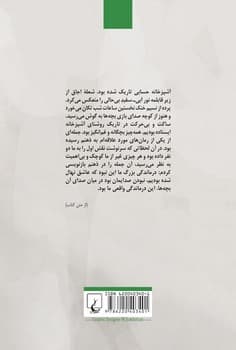 آشپزخانه حسابی تاریک شده بود. شعلهٔ اجاق از
زیر قابلمه نور آبی‌ـ‌سفید بی‌حالی را منعکس می‌کرد.
پرده از نسیم خنک نخستین ساعات شب تکان می‌خورد
و هنوز از کوچه صدای بازی بچه‌ها به گوش می‌رسید.
ساکت و بی‌حرکت در تاریک روشنای آشپزخانه
ایستاده بودیم. همه‌چیز بچگانه و غم‌انگیز بود. جمله‌ای
از یکی از رمان‌های مورد علاقه‌ام به یادم رسیده
بود. در آن لحظاتی که سرنوشت نقش اول را به ما دو
نفر داده بود و هر چیزی غیر از ما کوچک و بی‌اهمیت
به نظر می‌رسید، آن جمله را در ذهنم بازنویسی
کردم: درماندگی بزرگ ما این نبود که عاشق نهال
شده بودیم، نبودن صدایمان بود در میان صدای آن
بچه‌ها. این درماندگی واقعی ما بود.
(از متن کتاب)